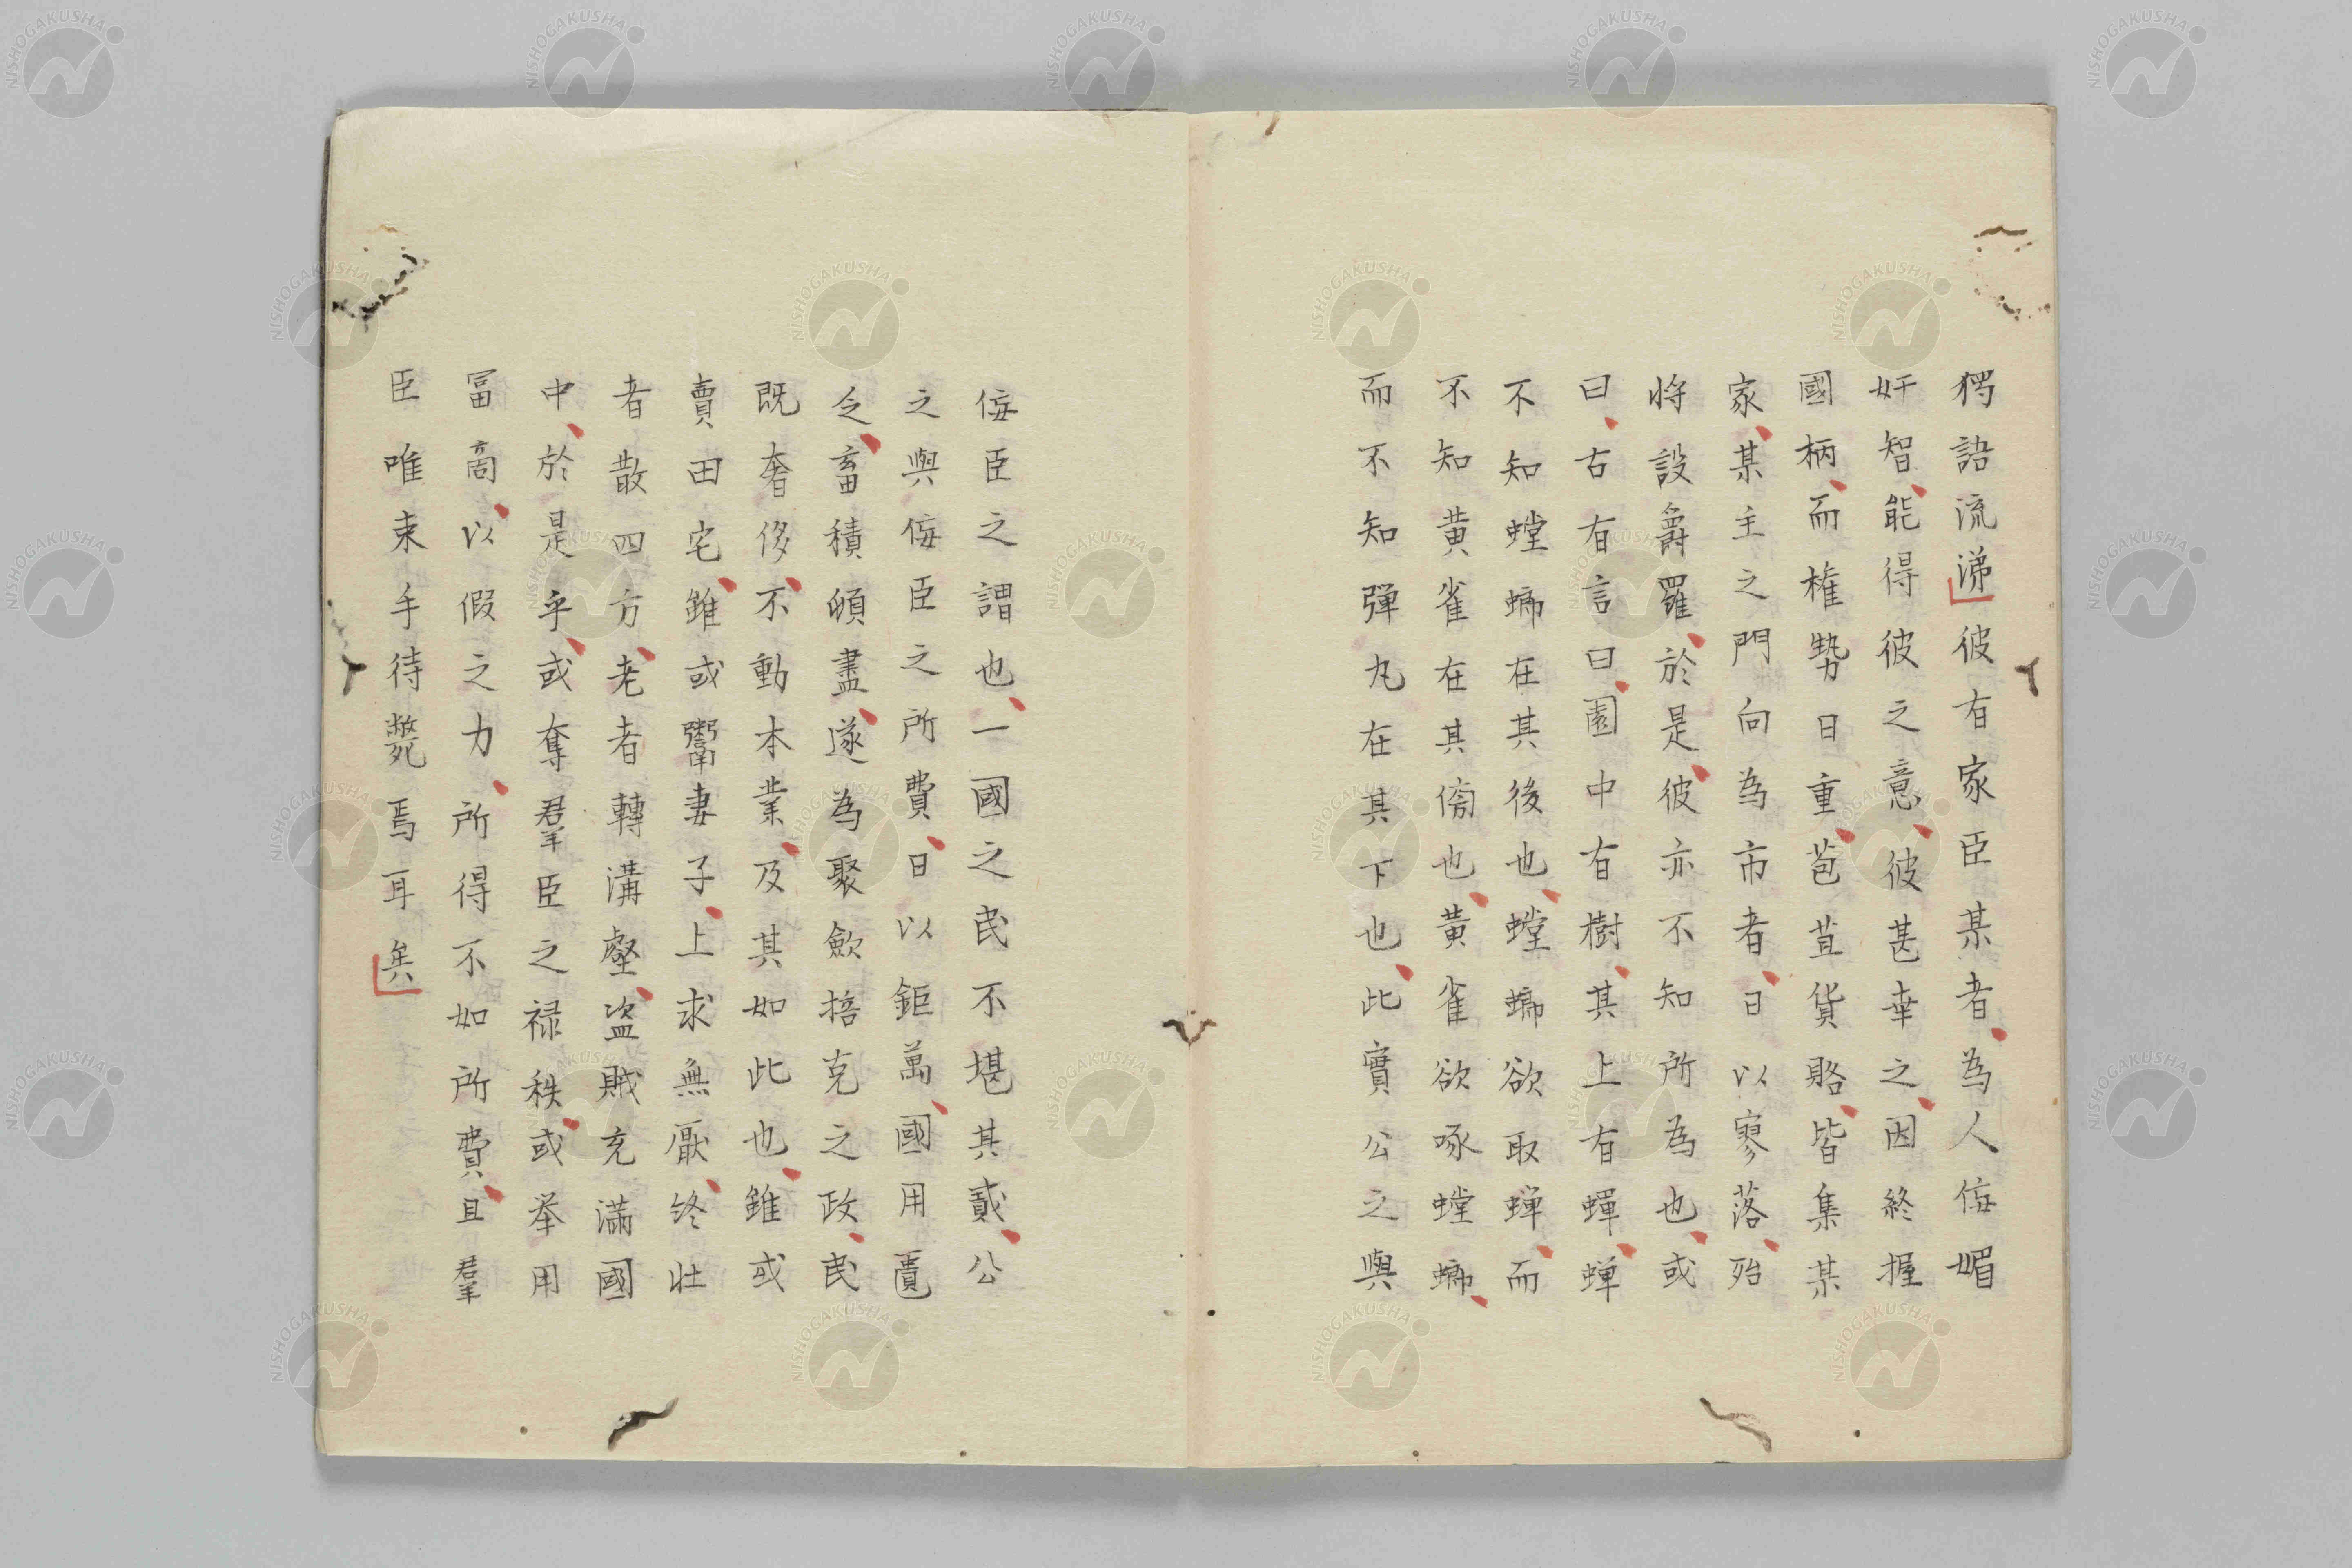 獨語流涕彼有家臣某者為人佞媚
奸智能得彼之意彼甚幸之因終握
國柄而権勢日重苞苴貨賂皆集某
家某主之門向為市者日以寥落殆
将設爵羅於是彼亦不知所為也或
曰古有言曰園中有樹其上有蟬蟬
不知螳螂在其後也螳螂欲取蟬而
不知黄雀在其傍也黄雀欲啄螳螂
而不知彈丸在其下也此實公之與
佞臣之謂也一國之民不堪其貳公
之與佞臣之所費日以鉅萬國用匱
令畜積傾盡遂為聚歛掊克之政民
既奢侈不動本業及其如此也雖或
賣田宅雖或鬻妻子上求無厭終壮
者散四方老者轉溝壑盗賊充滿國
中於是乎或奪羣臣之禄秩或挙用
冨商以假之力所得不如所費且羣
臣唯束手待斃焉耳矣
NISHOGAKUSHA